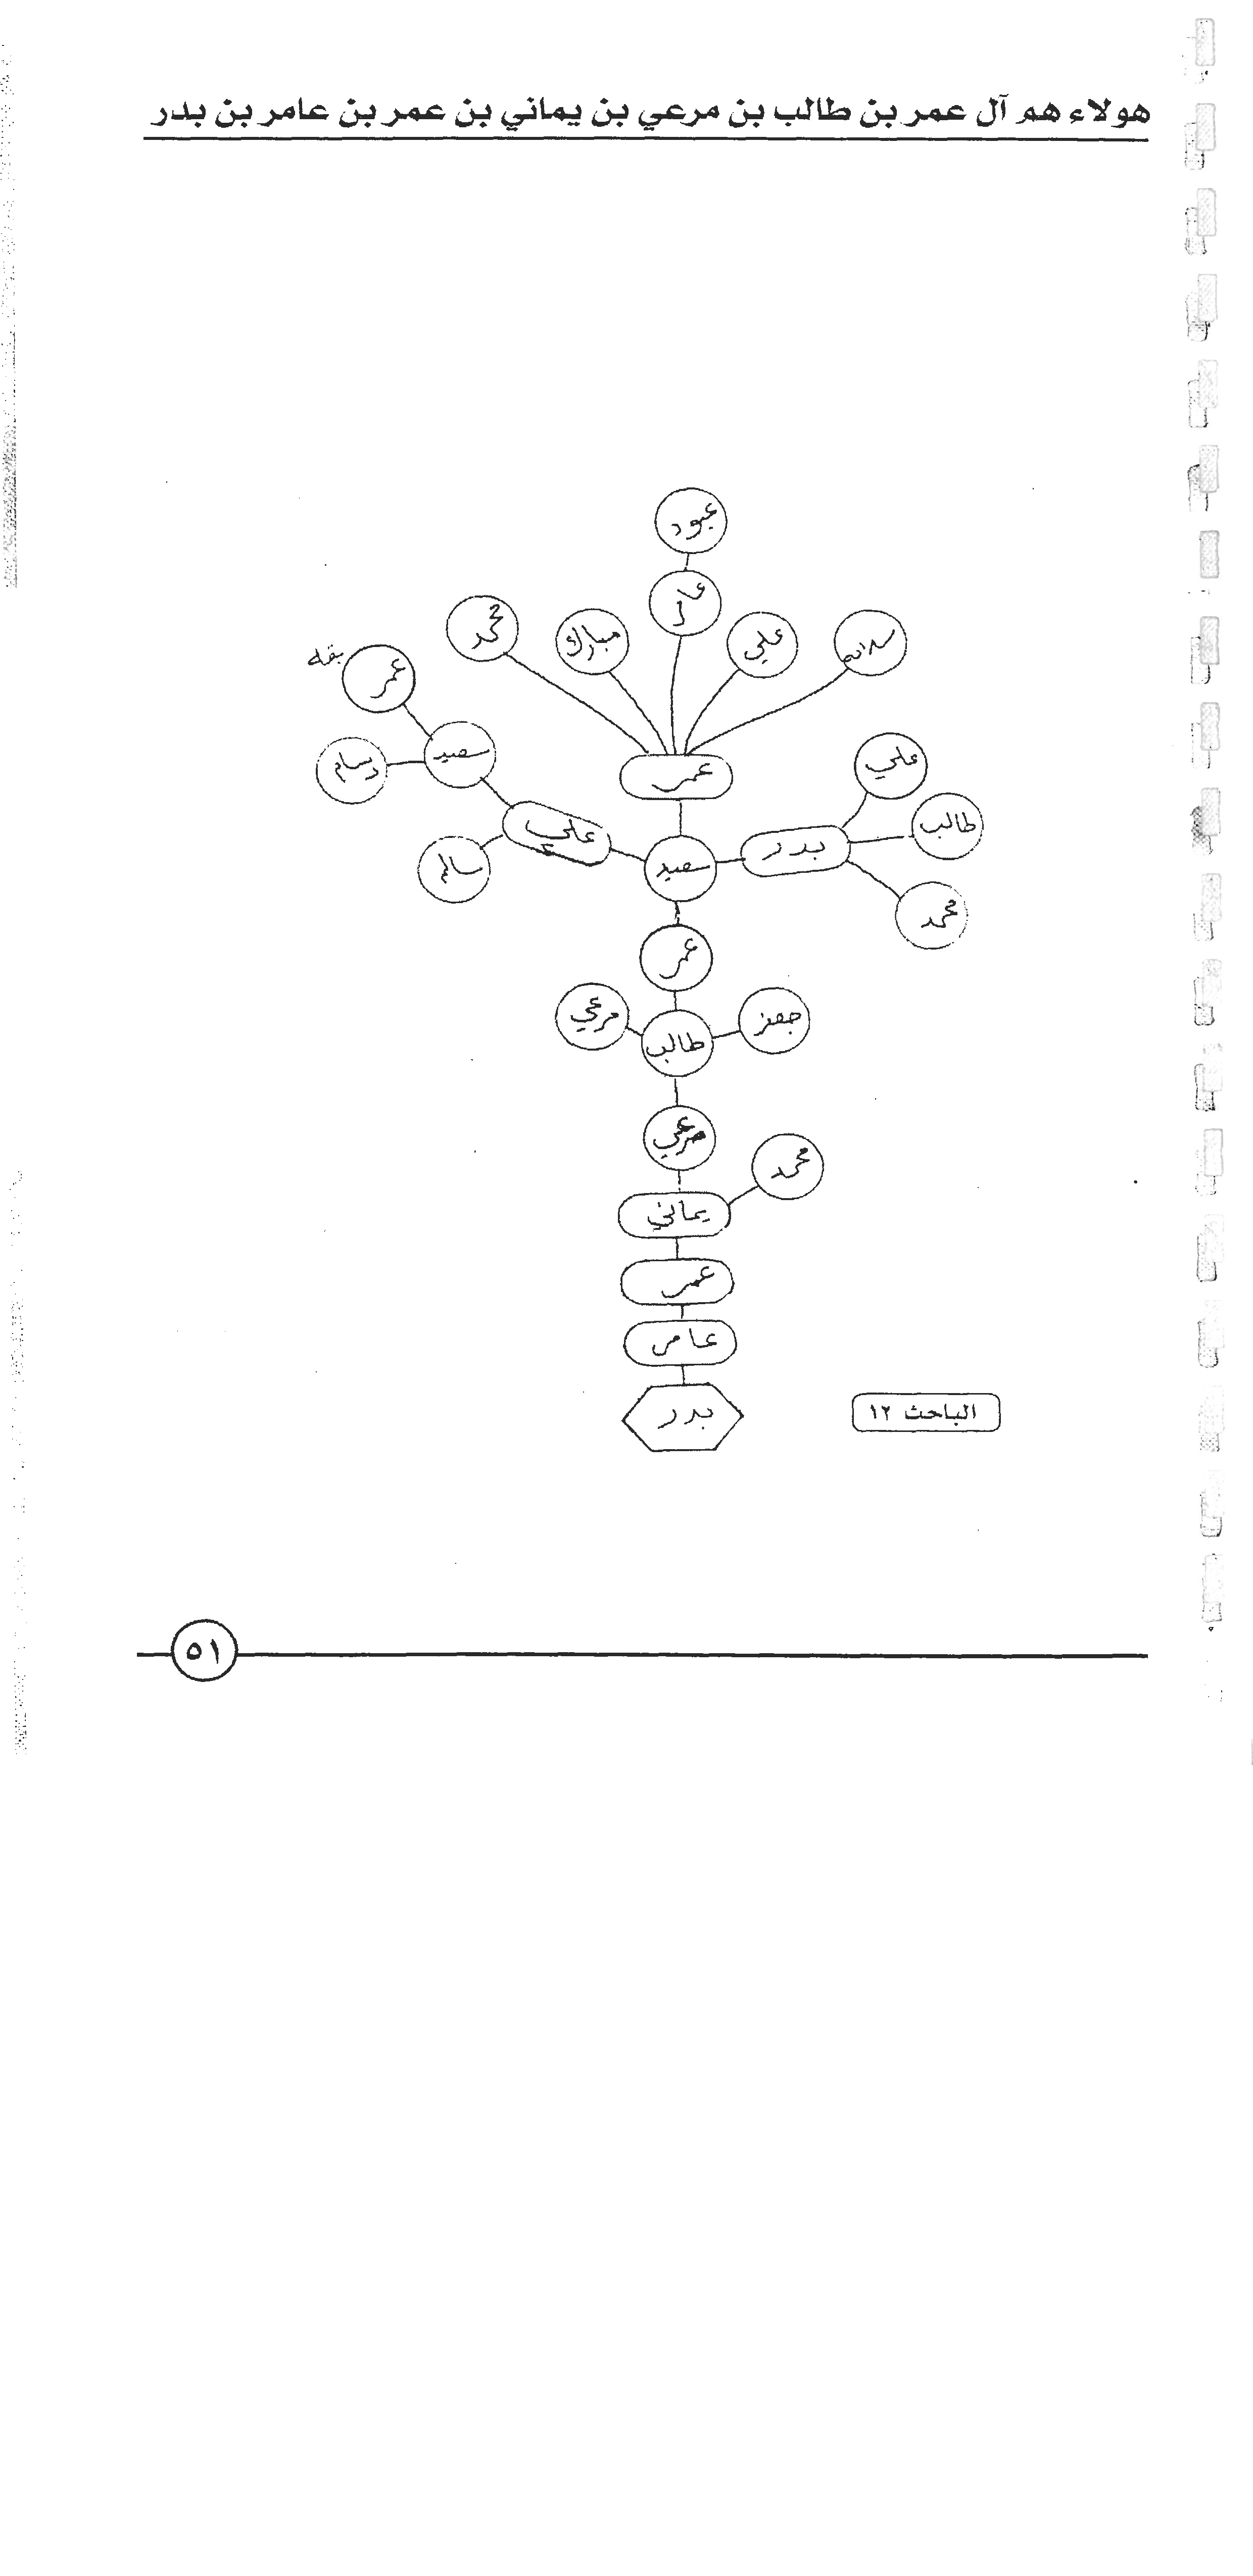 هولاء هم آل عمر بن طالب بن مرعي بن يماني بن عمر بن عامر بن بدر
عبود
عامر
محمد
مبارك
علي
عمر
سعيد
سالم
علي
عمر
سعيد
بدر
علي
طالب
محمد
عمر
مرعي
طالب
جعفر
مرعي
محمد
يماني
عمر
عامر
بدر
الباحث ١٢
٥١